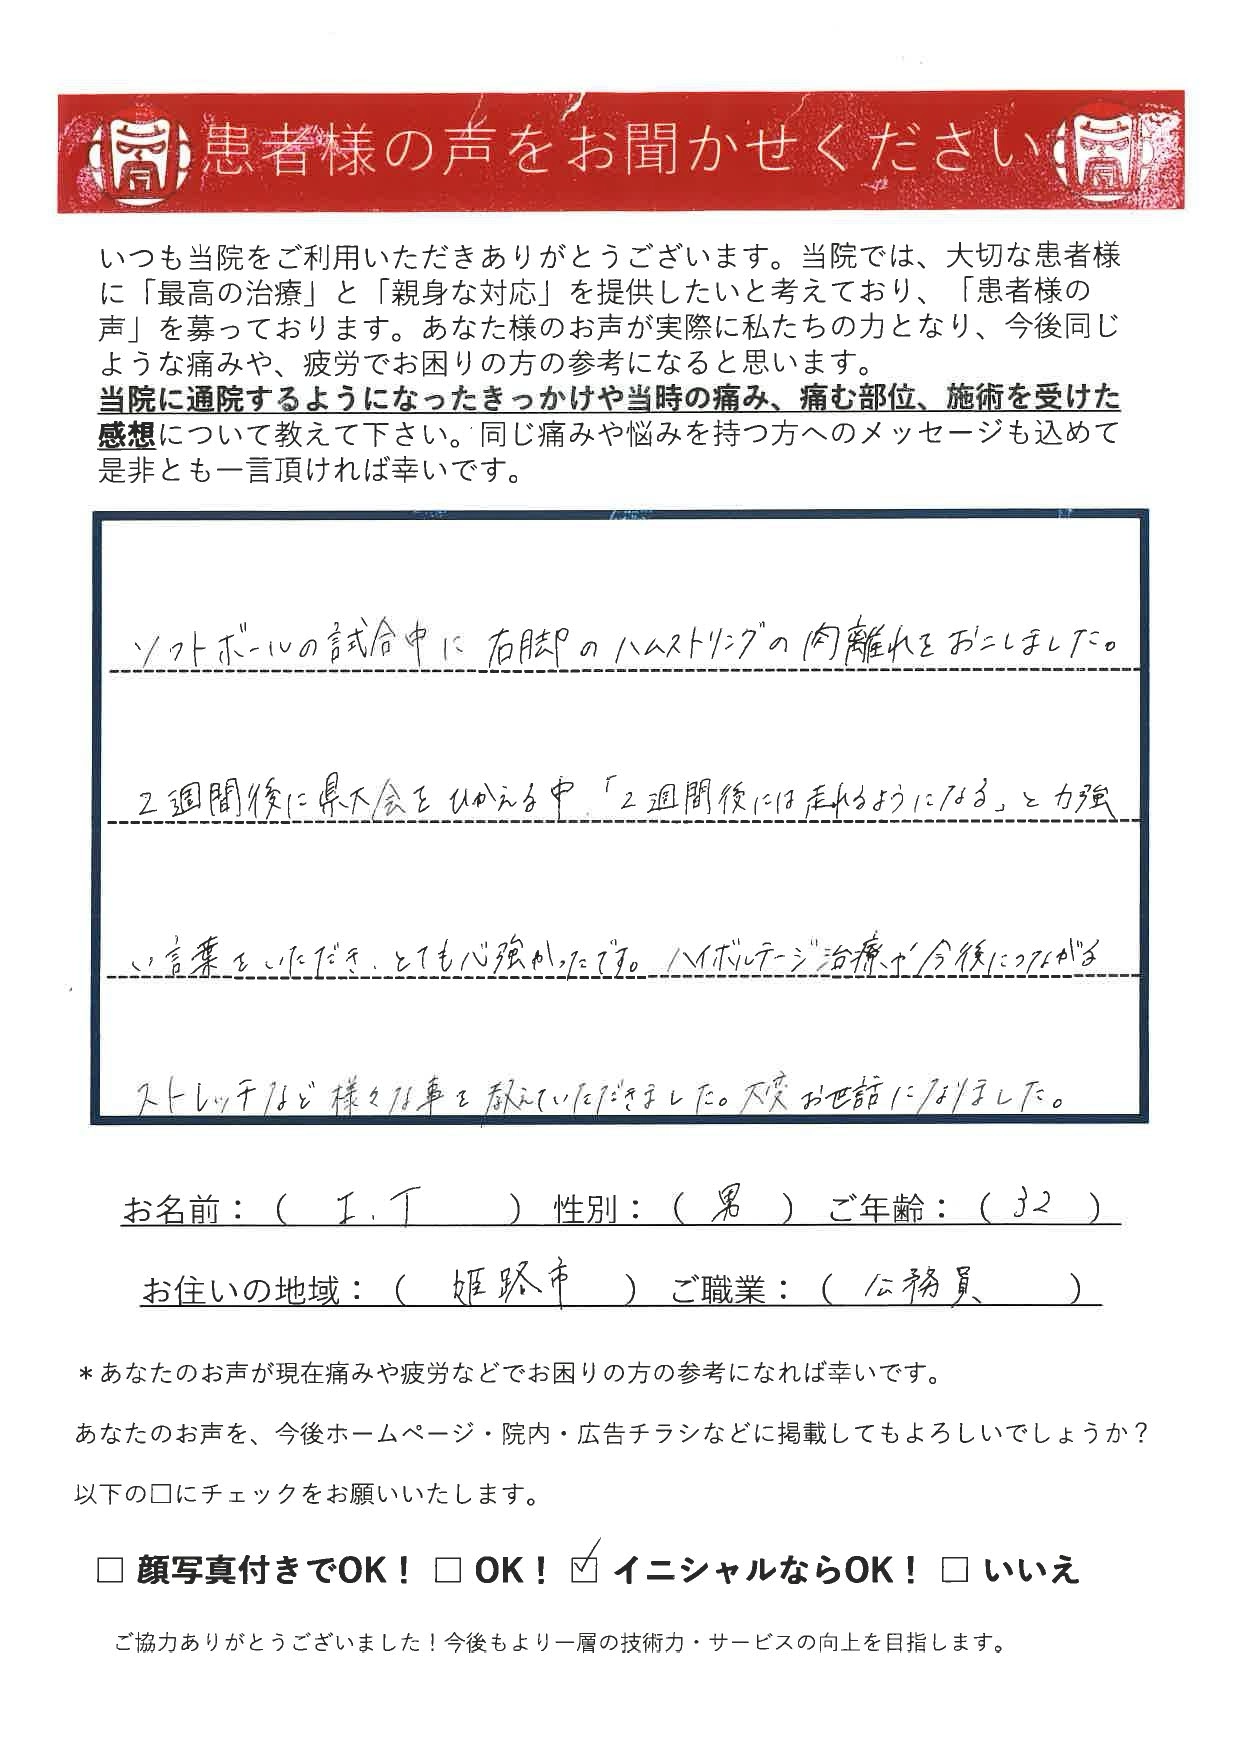 患者様の声をお聞かせください
いつも当院をご利用いただきありがとうございます。当院では、大切な患者様
に「最高の治療」と「親身な対応」を提供したいと考えており、「患者様の
声」を募っております。あなた様のお声が実際に私たちの力となり、今後同じ
ような痛みや、疲労でお困りの方の参考になると思います。
当院に通院するようになったきっかけや当時の痛み、痛む部位、施術を受けた
感想について教えて下さい。同じ痛みや悩みを持つ方へのメッセージも込めて
是非とも一言頂ければ幸いです。
ソフトボールの試合中に右脚のハムストリングの肉離れをおこしました。
2週間後に県大会をひかえる中「2週間後には走れるようになる」と力強
い言葉をいただき、とても心強かったです。ハイボルテージ治療や今後につながる
ストレッチなど様々な事を教えていただきました。大変お世話になりました。
お名前：（ I.T ） 性別：（ 男 ） ご年齢：（ 32 ）
お住いの地域：（ 姫路市 ） ご職業：（ 公務員 ）
＊あなたのお声が現在痛みや疲労などでお困りの方の参考になれば幸いです。
あなたのお声を、今後ホームページ・院内・広告チラシなどに掲載してもよろしいでしょうか？
以下の□にチェックをお願いいたします。
□ 顔写真付きでOK！ □ OK！ ☑ イニシャルならOK！ □ いいえ
ご協力ありがとうございました！今後もより一層の技術力・サービスの向上を目指します。